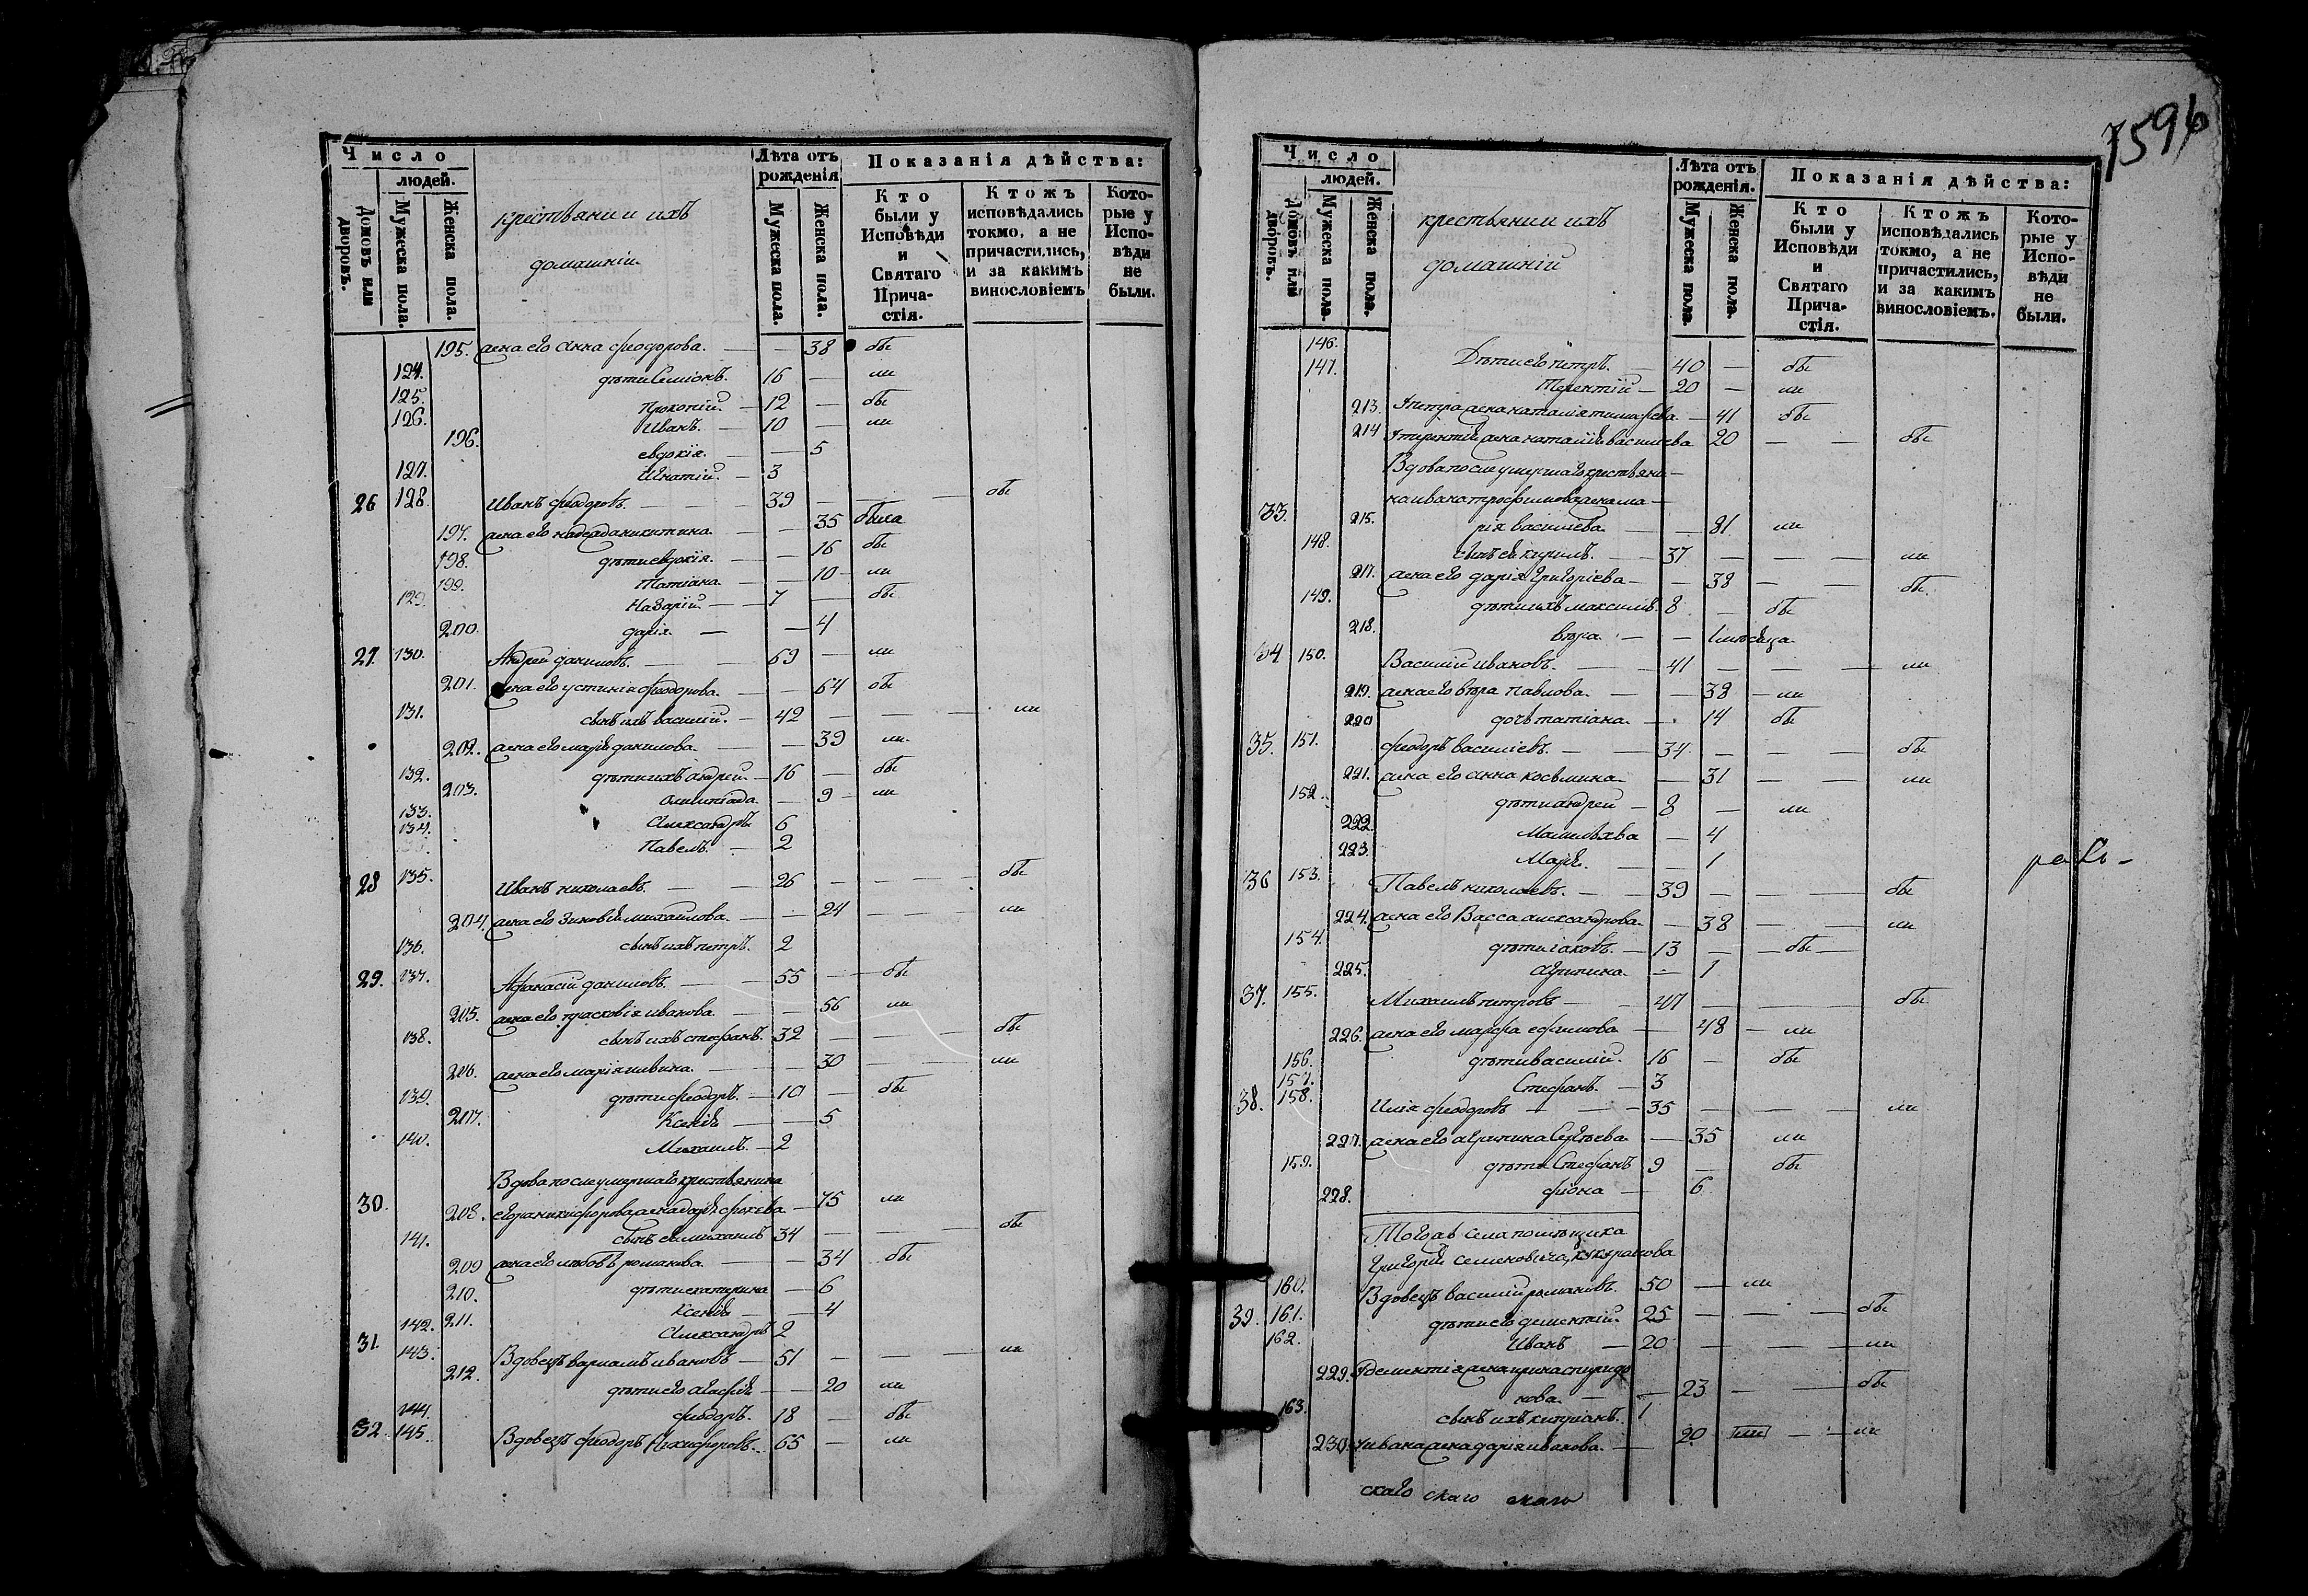 Число
людей.
Домовъ или дворовъ.
Мужеска пола.
Женска пола.
крестьяни и ихъ
домашнiи
Лѣта отъ рожденія
Мужеска пола.
Женска пола.
Показанія дѣйства:
Кто были у Исповѣди и Святаго Прича-стія.
Ктожъ исповѣдались токмо, а не причастились, и за какимъ винословіемъ
Кото-рые у Испо-вѣди не были.
195. жена его Анна феодорова. — — 38 бы
124. дѣти Симіонъ. 16 — ли
125. Прокопій. — 12 — бы
126. Иванъ. — 10 — ли
196. евдокія. — — 5
127. Игнатій. — 3
26 128 Иванъ феодоровъ. — — 39 — — — бы
197. жена его надежда никитина. — — 35 была
198. дѣти евдокія. — — 16 бы
199. Татіана — — 10 — ли
129. Назарій. — — 7 — бы
200. дарія. — — 4
27. 130. Андрей даниловъ. — — 69 — ли
201. жена его устинія феодорова. — — 64 бы
131. сынъ ихъ василій. — 42 — — — ли
202. жена его марія данилова. — — 39 ли
132. дѣти ихъ андрей. — 16 — бы
203. олимпіада. — 9 — ли
133. Александръ 6
134. Павелъ. — 2
28 135. Иванъ николаевъ. — — 26 — — — бы
204. жена его Зиновія михаилова. — — 24 — — — ли
136. сынъ ихъ петръ. 2
29. 137. Афанасій даниловъ. — — 55 — — бы
205. жена его прасковія иванова. — — 56 ли
138. сынъ ихъ стефанъ. 32 — — — бы
206. жена его марія — — 30 — — ли
139. дѣти феодоръ. — 10 — бы
207. Ксенія — — 5
140. Михаилъ. — 2
Вдова после умершаго крестьянина
30. 208. никифорова жена дарія — 75 ли
141. сынъ ея михаилъ 34 — — — бы
209 жена его любовь романова. — — 34 бы
210. дѣти екатерина — 6
211. Ксенія — — 4
142. Александръ 2
31. 143. Вдовецъ варламъ ивановъ — 51 — — — ли
212. дѣти его агафія — — 20 ли
144. феодоръ. — 18 — бы
32. 145. Вдовецъ феодоръ Никифоровъ. — 65 — ли
7596
Число
людей.
Домовъ или дворовъ.
Мужеска пола.
Женска пола.
крестьяни и ихъ
домашнiй
Лѣта отъ рожденія.
Мужеска пола.
Женска пола.
Показанія дѣйства:
Кто были у Исповѣди и Святаго Прича-стія.
Ктожъ исповѣдались токмо, а не причастились, и за какимъ винословіемъ.
Кото-рые у Испо-вѣди не были.
146. Дѣти его петръ. — 40 — бы
147. Терентій — 20 — ли
213. У петра жена наталія тимофѣева. — 41 бы
214 У терентія жена наталія василіева 20 — — бы
Вдова после умершаго крестьяни—
на ивана трофимова жена ма—
33. 215. рія василіева. — — 81 ли
148. сынъ ея кирилъ. — — 37 — — — ли
217. жена его дарія григоріева — — 38 — — бы.
149. дѣти ихъ максимъ. 8 — бы
218. вѣра. — — 1 мѣсяца
34 150. Василій ивановъ. — — 41 — — — ли
219. жена его вѣра павлова. — — 38 — ли
220 дочь татіана. — 14 бы
35. 151. феодоръ василіевъ. — — 34 — — — бы
221. жена его анна косьмина — — 31 — — ли
152. дѣти андрей — 8 — ли
222. — 4
223. Марія. — — 1
36 153. Павелъ николаевъ. — — 39 — — — бы
224. жена его Васса александрова. — 38 — — ли
154. дѣти іаковъ. — 13 — — бы —
225. агрипина. — 1
37. 155. Михаилъ петровъ — — 47 — — — бы
226. жена его марфа ефимова — 48 — ли
156. дѣти василій. 16 — бы
157. Стефанъ. — 3
38. 158. Илія феодоровъ — — 35 — — — ли
227. жена его агрипина Сергѣева. — 35 ли
159. дѣти Стефанъ 9 — бы
228. фіона — 6
Тогожъ села помѣщика
Григорія Семеновича кукуранова
160. Вдовецъ василій романовъ. 50 — ли
39. 161. дѣти его дементій. 25 — — — бы
162. Иванъ — 20 — — — ли
229. У дементія жена ирина спиридо
нова. — — 23 — — бы
163. сынъ ихъ кипріанъ. 1
230. У ивана жена дарія иванова. — 20 ли — — ли
скаго скаго скаго